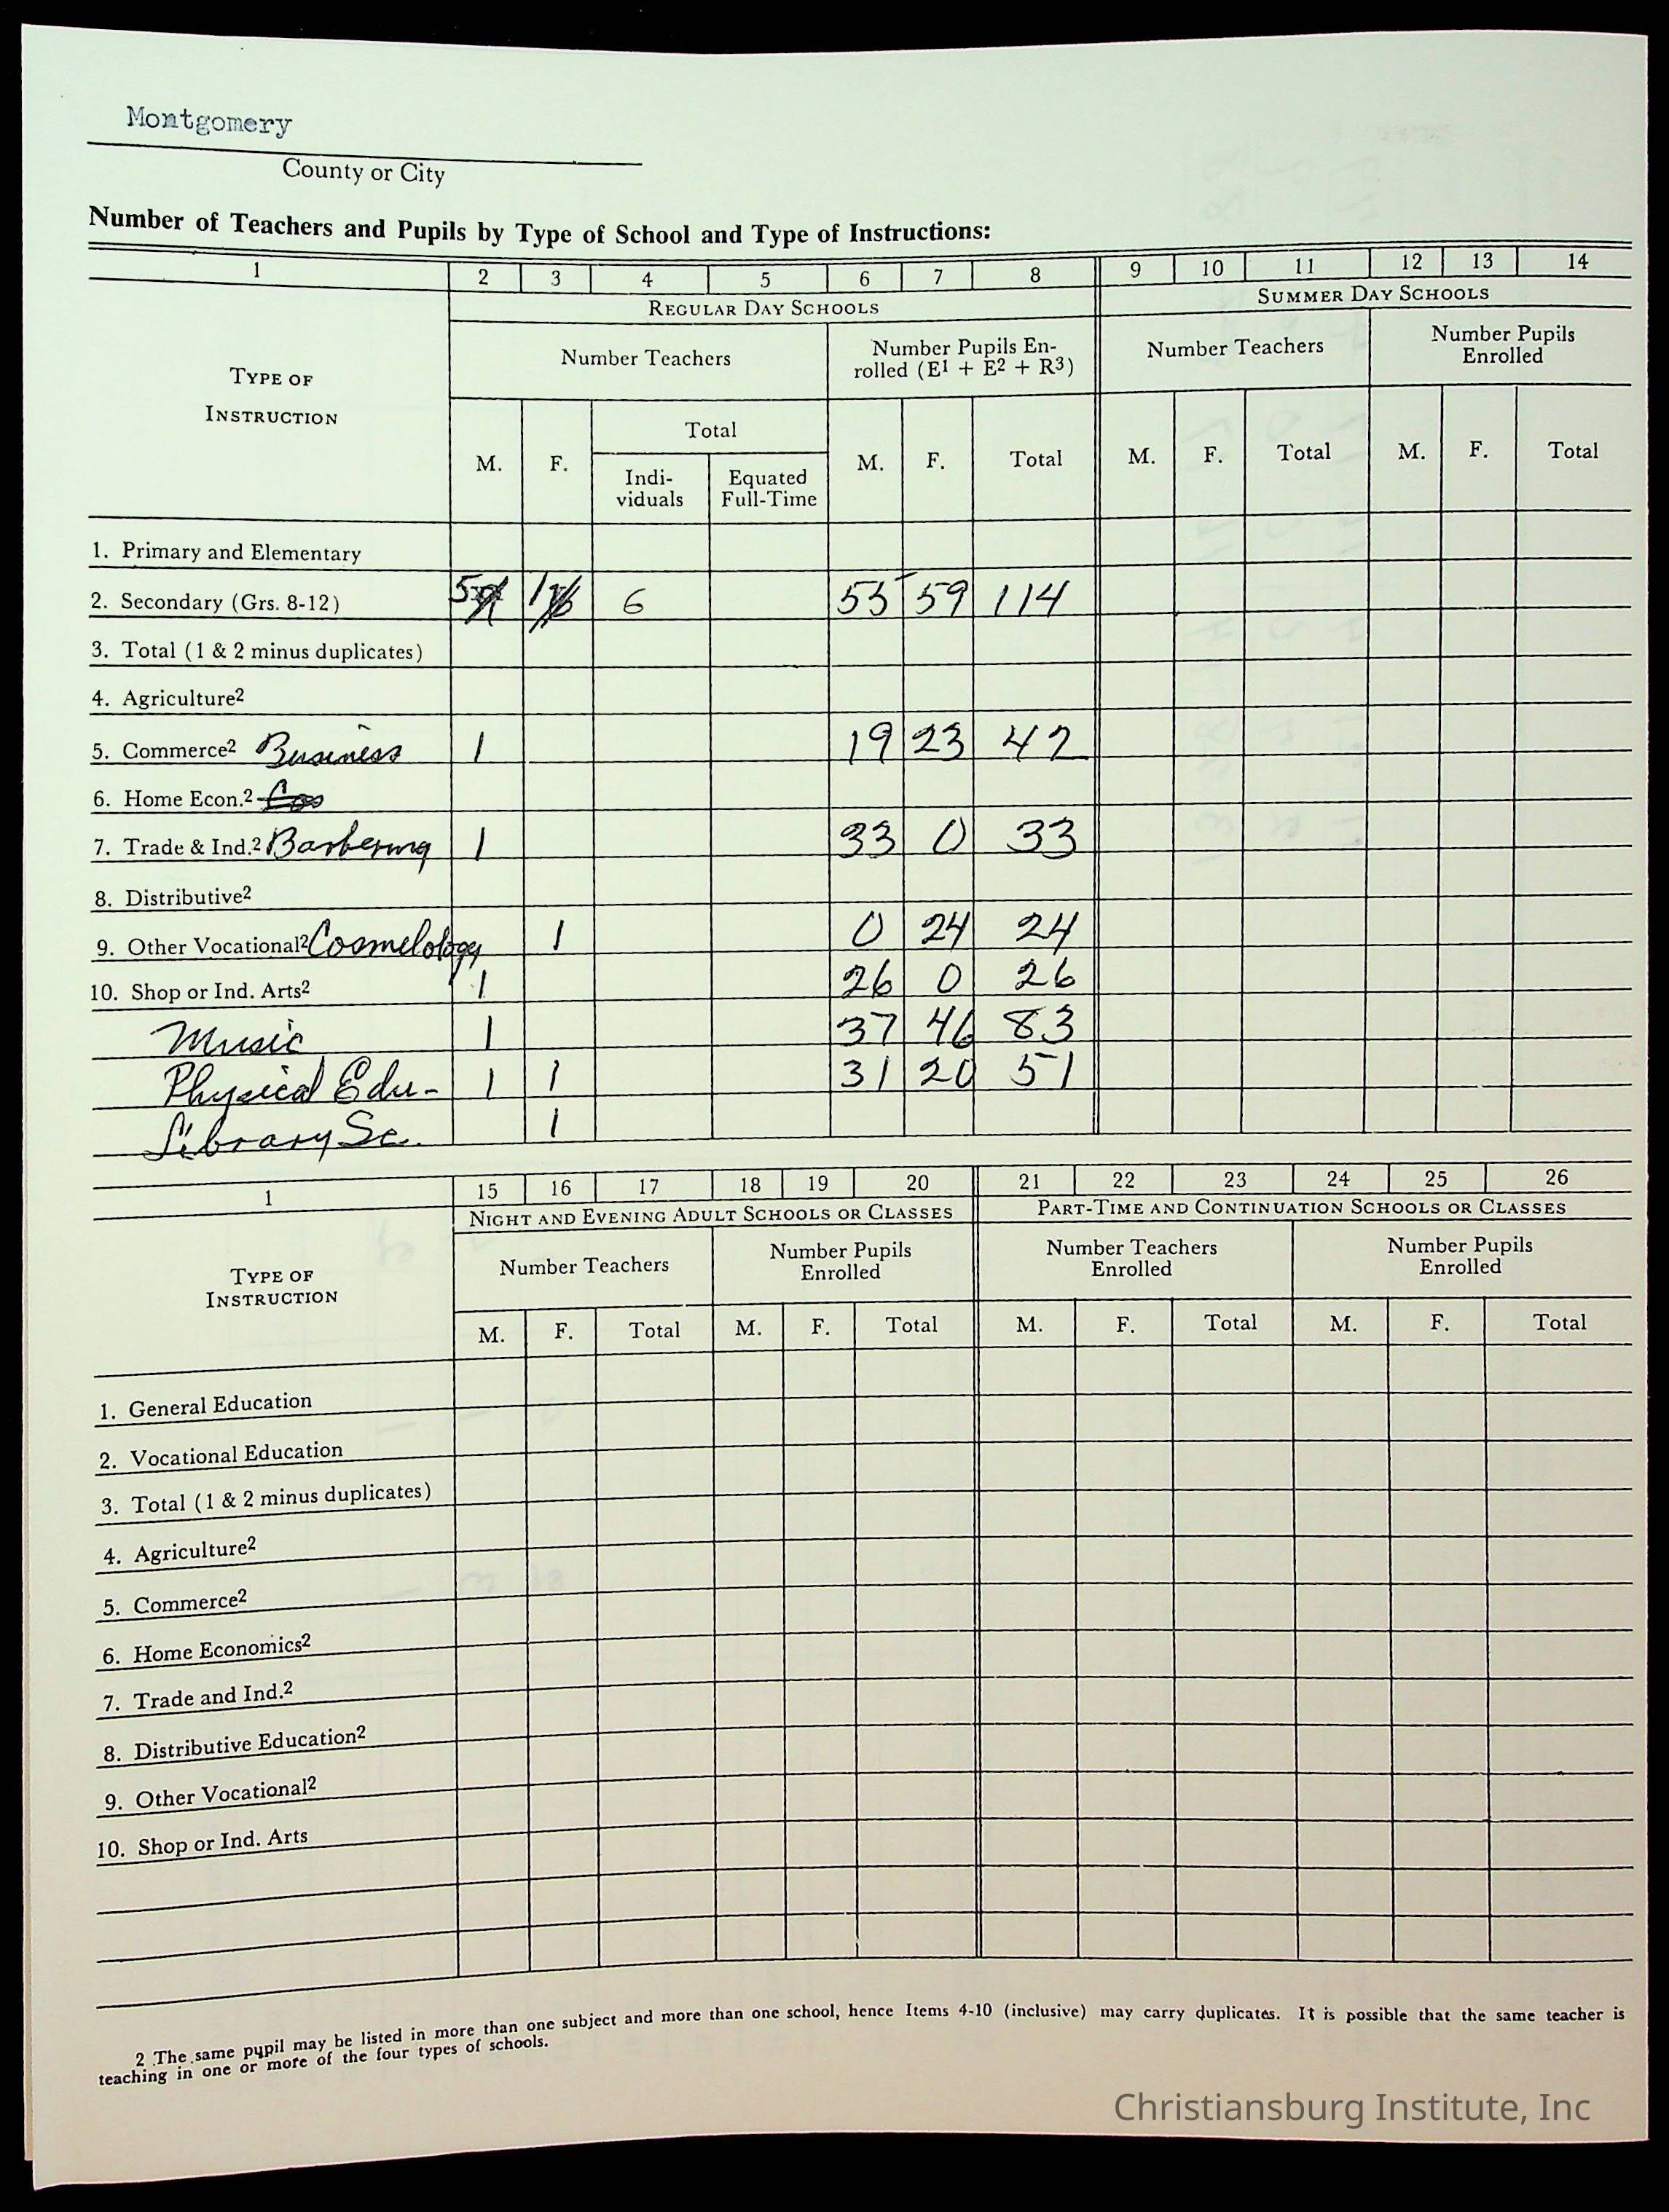 Montgomery
County or City
Number of Teachers and Pupils by Type of School and Type of Instructions:
1 2 3 4 5 6 7 8 9 10 11 12 13 14
REGULAR DAY SCHOOLS SUMMER DAY SCHOOLS
TYPE OF INSTRUCTION
Number Teachers
Number Pupils En-
rolled (E1 + E2 + R3)
Number Teachers
Number Pupils
Enrolled
M. F. Total M. F. Total M. F. Total M. F. Total
Indi-
viduals
Equated
Full-Time
1. Primary and Elementary
2. Secondary (Grs. 8-12) 5 1 6 55 59 114
3. Total (1 & 2 minus duplicates)
4. Agriculture2
5. Commerce2 Business 1 19 23 42
6. Home Econ.2
7. Trade & Ind.2 Barbering 1 33 0 33
8. Distributive2
9. Other Vocational2 Cosmelology 1 0 24 24
10. Shop or Ind. Arts2 1 26 0 26
Music 1 37 46 83
Physical Edu- 1 1 31 20 51
Library Sc. 1
1 15 16 17 18 19 20 21 22 23 24 25 26
NIGHT AND EVENING ADULT SCHOOLS OR CLASSES PART-TIME AND CONTINUATION SCHOOLS OR CLASSES
TYPE OF
INSTRUCTION
Number Teachers
Number Pupils
Enrolled
Number Teachers
Enrolled
Number Pupils
Enrolled
M. F. Total M. F. Total M. F. Total M. F. Total
1. General Education
2. Vocational Education
3. Total (1 & 2 minus duplicates)
4. Agriculture2
5. Commerce2
6. Home Economics2
7. Trade and Ind.2
8. Distributive Education2
9. Other Vocational2
10. Shop or Ind. Arts
2 The same pupil may be listed in more than one subject and more than one school, hence Items 4-10 (inclusive) may carry duplicates. It is possible that the same teacher is
teaching in one or more of the four types of schools.
Christiansburg Institute, Inc